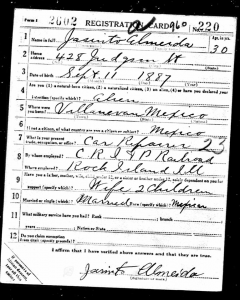 2602 REGISTRATION CARD 960 No. 220
1 Name in full Jasinto Almeida Age, in yrs. 30
2 Home address 428 Judson St
3 Date of birth Sept. 11 1887
4 Are you (1) a natural-born citizen, (2) a naturalized citizen, (3) an alien, (4) or have you declared your intention (specify which)?
5 Where were you born? Mexico
6 If not a citizen, of what country are you a citizen or subject? Mexico
7 What is your present trade, occupation, or office? Car Repairer 23
8 By whom employed? C R I & P Railroad
Where employed? Rock Island
9 support (specify which)? Wife 2 Children
10 Married or single (which)? Married Race (specify which)? Mexican
11 What military service have you had? Rank
years Nation or State
12 Do you claim exemption from draft (specify grounds)?
I affirm that I have verified above answers and that they are true.
Jasinto Almeida